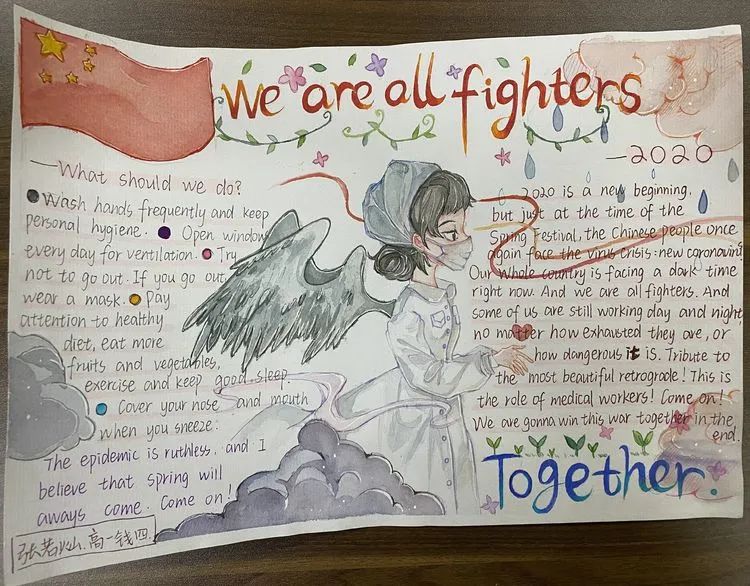 We are all fighters
—2020
—What should we do?
Wash hands frequently and keep
personal hygiene. Open window
every day for ventilation. Try
not to go out. If you go out
wear a mask. Pay
attention to healthy
diet, eat more
fruits and vegetables,
exercise and keep good sleep.
Cover your nose and mouth
when you sneeze.
The epidemic is ruthless, and I
believe that spring will
aways come. Come on!
张若灿.高一钱四.
2020 is a new beginning,
but just at the time of the
Spring Festival, the Chinese people once
again face the virus crisis: new coronaving
Our whole country is facing a dark time
right now. And we are all fighters. And
some of us are still working day and night,
no matter how exhausted they are, or
how dangerous it is. Tribute to
the most beautiful retrograde! This is
the role of medical workers! Come on!
We are gonna win this war together in the
end.
Together.